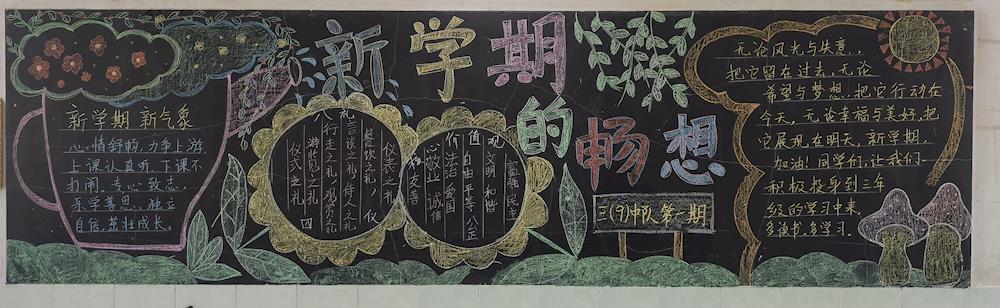 新学期的畅想
新学期 新气象
心情舒畅，力争上游
上课认真听，下课不
打闹。专心致志，
乐学善思。独立
自信，茁壮成长。
八行走之礼 观赏之礼
言谈之礼 待人之礼
餐饮之礼 仪
仪表之礼
游览之礼
仪式之礼 四
价值观
富强 民主
文明 和谐
自由 平等 公正
法治 爱国
敬业 诚信
友善
三(9)中队第一期
无论风光与失意，
把它留在过去，无论
希望与梦想，把它行动在
今天，无论幸福与美好，把
它展现在明天，新学期，
加油！同学们，让我们
积极投身到三年
级的学习中来，
多读书，多学习。